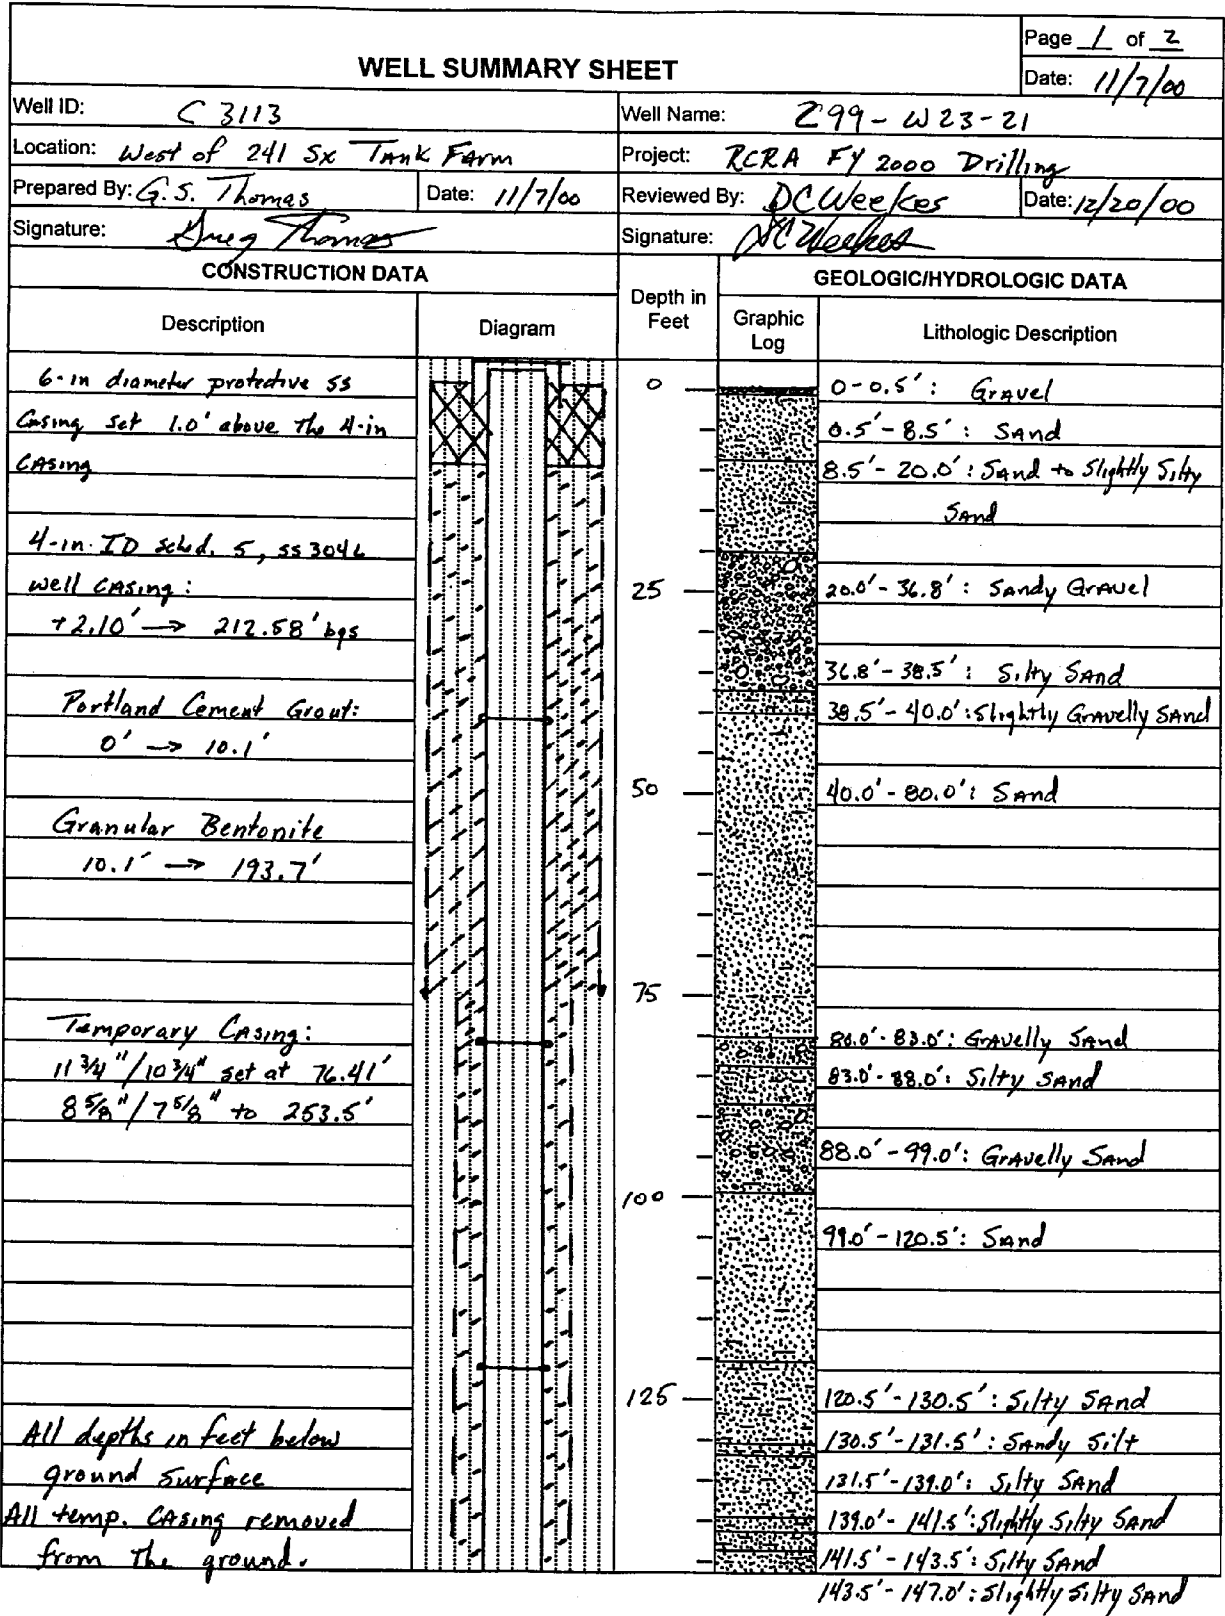 WELL SUMMARY SHEET
Page 1 of 2
Date: 11/7/00
Well ID: C 3113
Well Name: 299-W23-21
Location: West of 241 Sx Tank Farm
Project: RCRA FY 2000 Drilling
Prepared By: G.S. Thomas
Date: 11/7/00
Reviewed By: DC Weekes
Date: 12/20/00
Signature: Greg Thomas
Signature: DC Weekes
CONSTRUCTION DATA
Depth in
Feet
GEOLOGIC/HYDROLOGIC DATA
Description
Diagram
Graphic
Log
Lithologic Description
6-in diameter protective ss
Casing set 1.0' above the 4-in
Casing
4-in. ID sched. 5, ss 304L
well casing:
+2.10' → 212.58' bgs
Portland Cement Grout:
0' → 10.1'
Granular Bentonite
10.1' → 193.7'
Temporary Casing:
11 3/4"/10 3/4" set at 76.41'
8 5/8"/7 5/8" to 253.5'
All depths in feet below
ground surface
All temp. casing removed
from the ground.
0
25
50
75
100
125
0-0.5': Gravel
0.5'-8.5': Sand
8.5'-20.0': Sand to Slightly Silty
Sand
20.0'-36.8': Sandy Gravel
36.8'-38.5': Silty Sand
38.5'-40.0': Slightly Gravelly Sand
40.0'-80.0': Sand
80.0'-83.0': Gravelly Sand
83.0'-88.0': Silty Sand
88.0'-99.0': Gravelly Sand
99.0'-120.5': Sand
120.5'-130.5': Silty Sand
130.5'-131.5': Sandy Silt
131.5'-139.0': Silty Sand
139.0'-141.5': Slightly Silty Sand
141.5'-143.5': Silty Sand
143.5'-147.0': Slightly Silty Sand